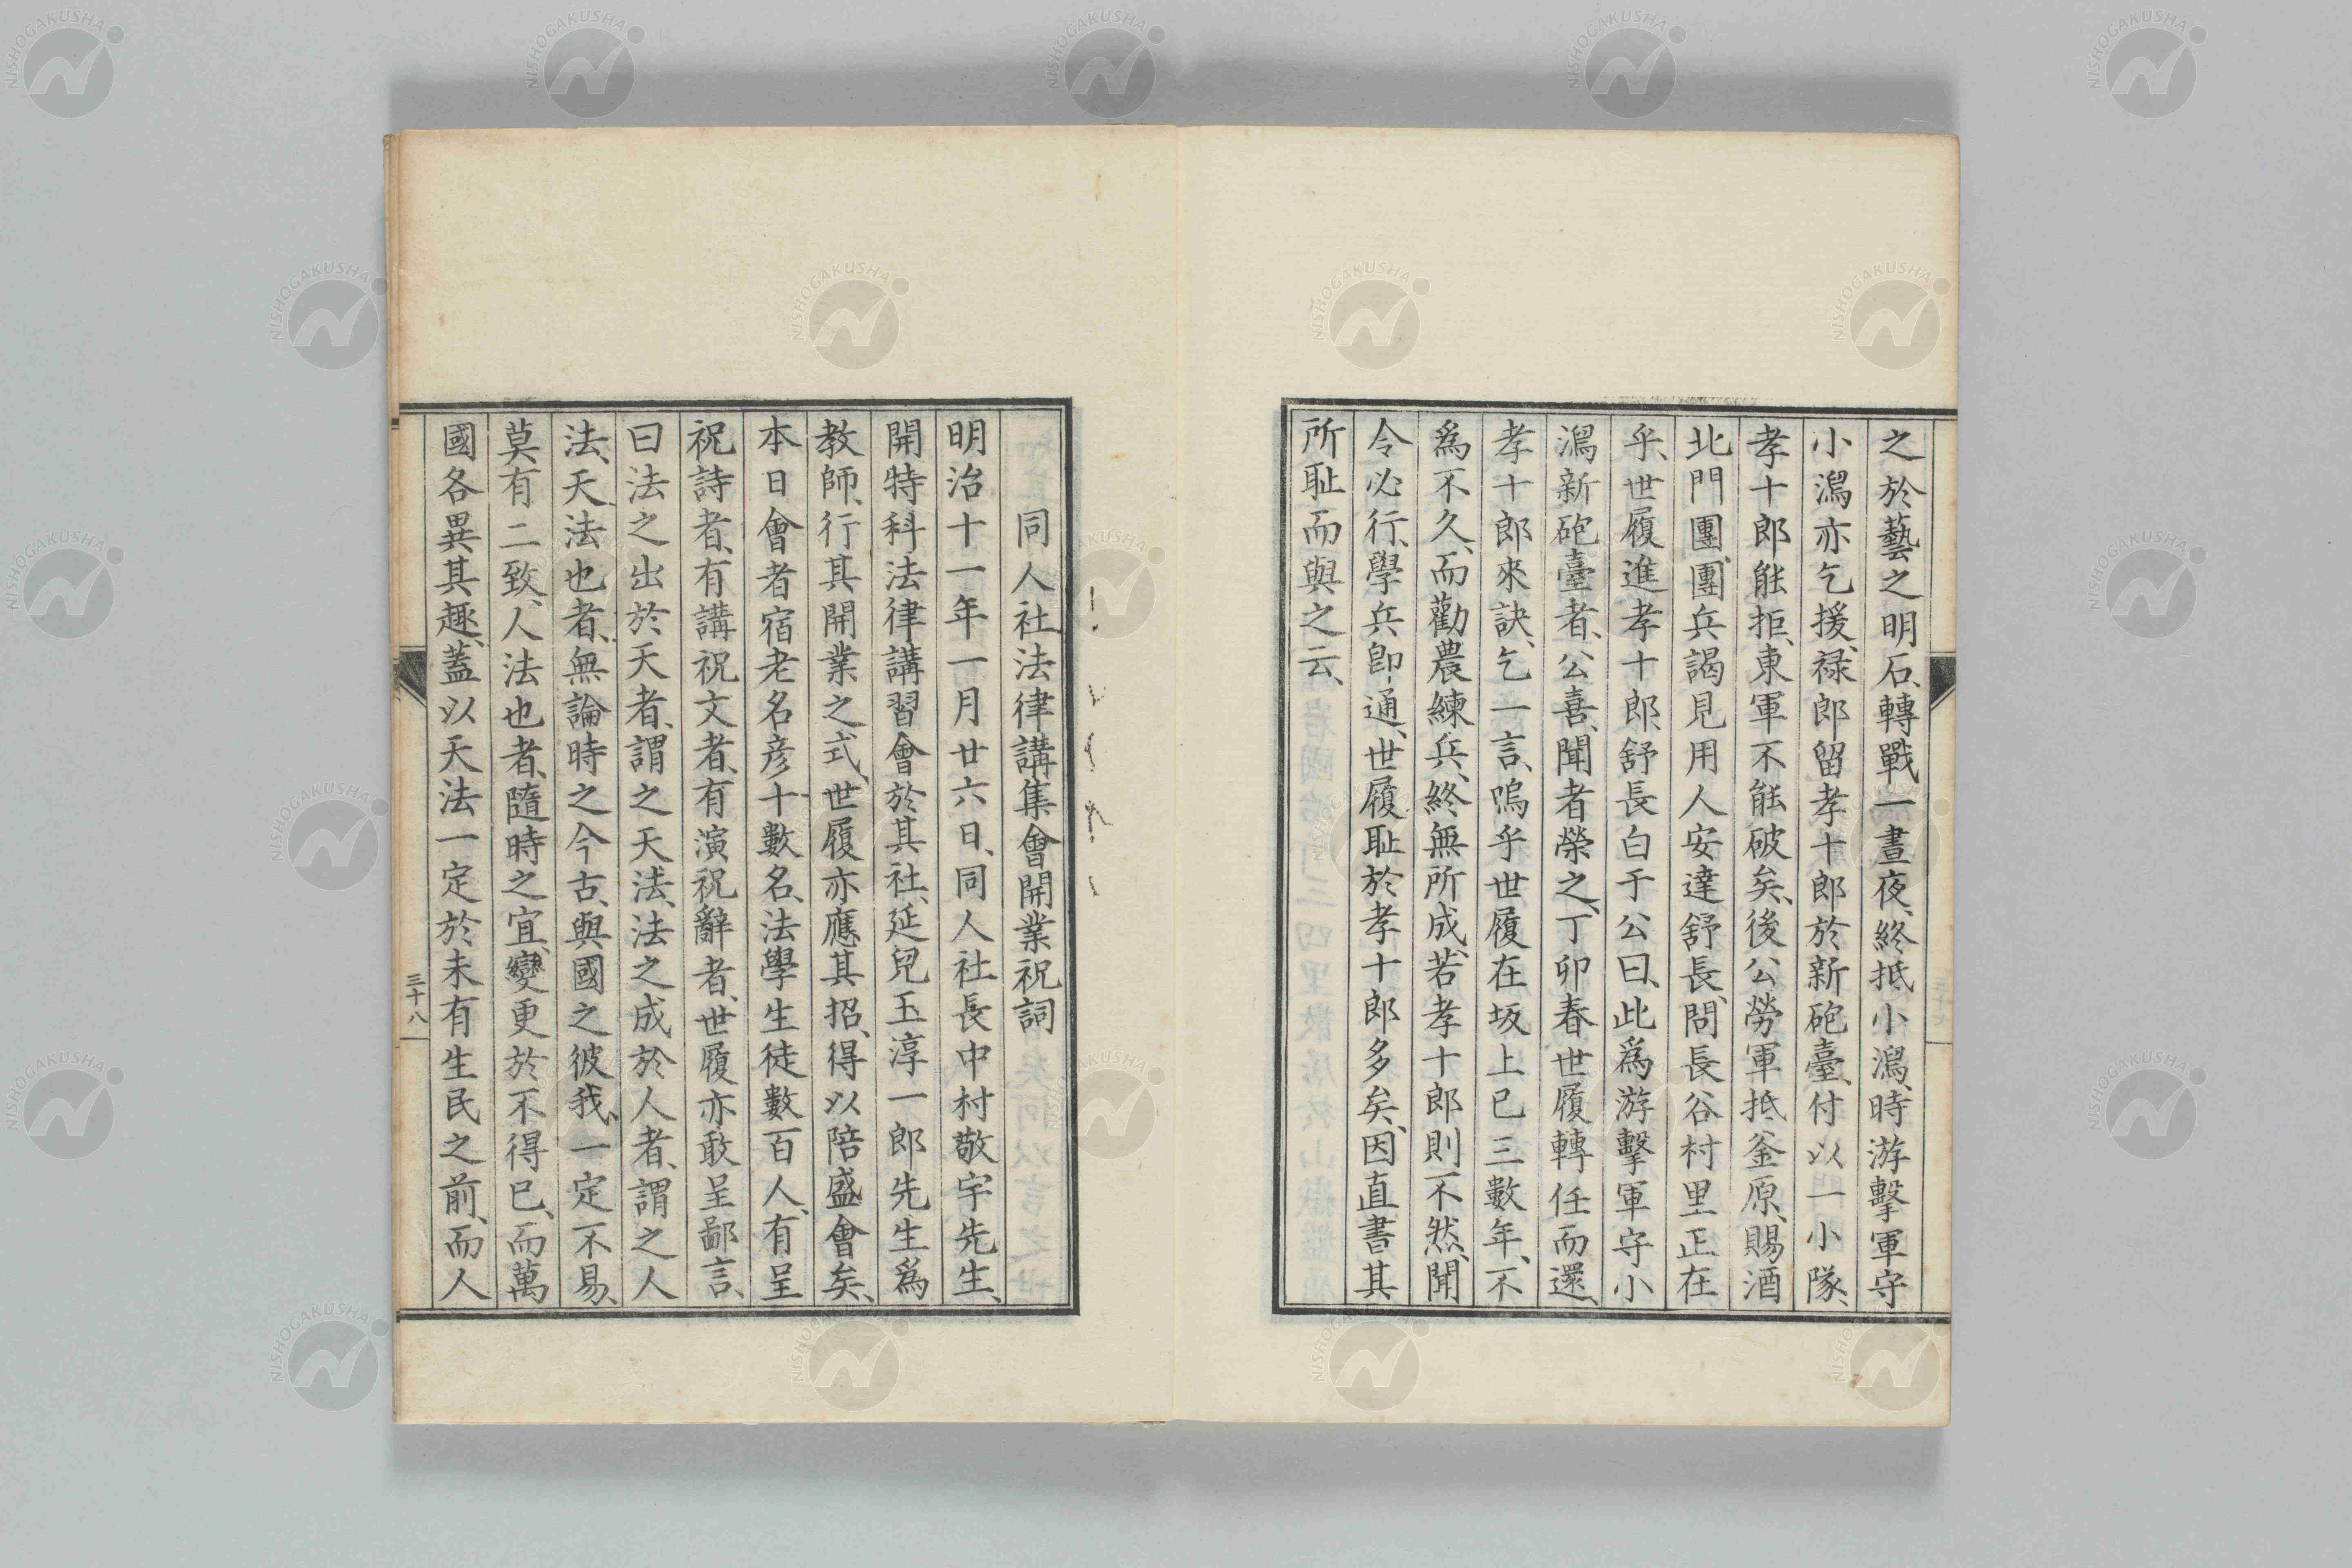 之於藝之明石、轉戰一晝夜、終抵小潟、時游擊軍守
小潟亦乞援、禄郎留孝十郎於新砲臺、付以一小隊、
孝十郎能拒、東軍不能破矣、後公勞軍抵釜原、賜酒
北門團、團兵謁見用人安達舒長、問長谷村里正在
乎、世履進孝十郎、舒長白于公曰、此爲游擊軍守小
潟新砲臺者、公喜、聞者榮之、丁卯春世履轉任而還、
孝十郎來訣、乞一言、嗚乎世履在坂上已三數年、不
爲不久、而勸農練兵、終無所成、若孝十郎則不然、聞
令必行、學兵卽通、世履耻於孝十郎多矣、因直書其
所耻而與之云、
同人社法律講集會開業祝詞
明治十一年一月廿六日、同人社長中村敬宇先生、
開特科法律講習會於其社、延兒玉淳一郎先生爲
教師、行其開業之式、世履亦應其招、得以陪盛會矣、
本日會者宿老名彦十數名、法學生徒數百人、有呈
祝詩者、有講祝文者、有演祝辭者、世履亦敢呈鄙言、
曰法之出於天者、謂之天法、法之成於人者、謂之人
法、天法也者、無論時之今古、與國之彼我、一定不易、
莫有二致、人法也者、隨時之宜、變更於不得已、而萬
國各異其趣、蓋以天法一定於未有生民之前、而人
三十八
NISHOGAKUSHA